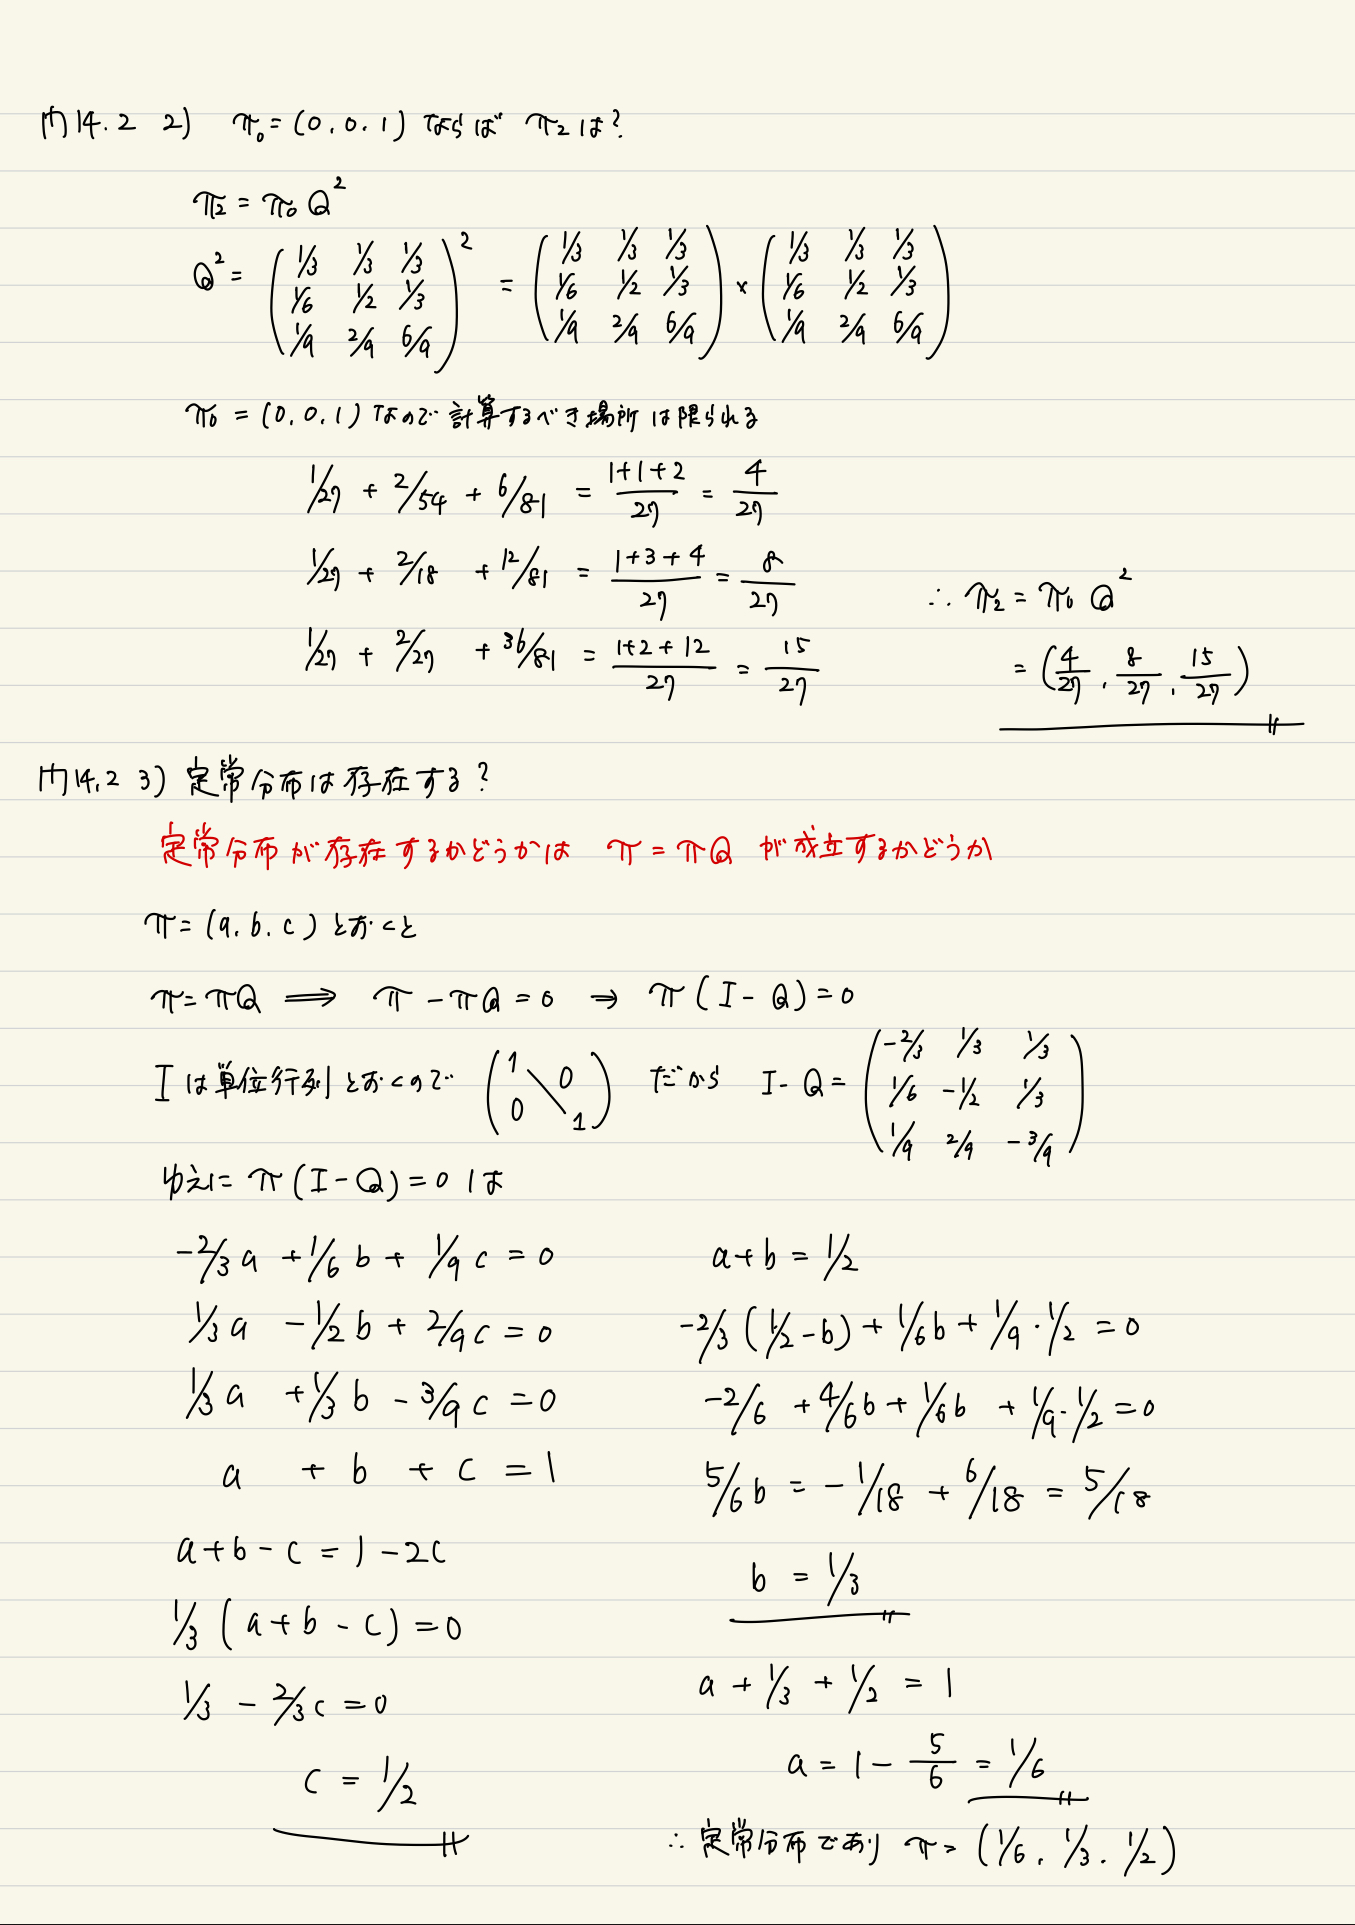 内14.2 2) π₀ = (0, 0, 1) ならば π₂は?
π₂ = π₀ Q²
Q² = (1/3 1/3 1/3; 1/6 1/2 1/3; 1/9 2/9 6/9)² = (1/3 1/3 1/3; 1/6 1/2 1/3; 1/9 2/9 6/9) × (1/3 1/3 1/3; 1/6 1/2 1/3; 1/9 2/9 6/9)
π₀ = (0, 0, 1) なので 計算するべき場所は限られる
1/27 + 2/54 + 6/81 = (1+1+2)/27 = 4/27
1/27 + 2/18 + 12/81 = (1+3+4)/27 = 8/27
1/27 + 2/27 + 36/81 = (1+2+12)/27 = 15/27
∴ π₂ = π₀ Q²
= (4/27, 8/27, 15/27)
内14.2 3) 定常分布は存在する?
定常分布が存在するかどうかは π = πQ が成立するかどうか
π = (a, b, c) とおくと
π = πQ ⟹ π - πQ = 0 ⇒ π(I - Q) = 0
Iは単位行列とおくので (1 0; 0 1) だから I - Q = (-2/3 1/3 1/3; 1/6 -1/2 1/3; 1/9 2/9 -3/9)
ゆえに π(I - Q) = 0 は
-2/3 a + 1/6 b + 1/9 c = 0
1/3 a - 1/2 b + 2/9 c = 0
1/3 a + 1/3 b - 3/9 c = 0
a + b + c = 1
a + b - c = 1 - 2c
1/3 (a + b - c) = 0
1/3 - 2/3 c = 0
c = 1/2
a + b = 1/2
-2/3 (1/2 - b) + 1/6 b + 1/9 · 1/2 = 0
-2/6 + 4/6 b + 1/6 b + 1/9 · 1/2 = 0
5/6 b = - 1/18 + 6/18 = 5/18
b = 1/3
a + 1/3 + 1/2 = 1
a = 1 - 5/6 = 1/6
∴ 定常分布であり π = (1/6, 1/3, 1/2)